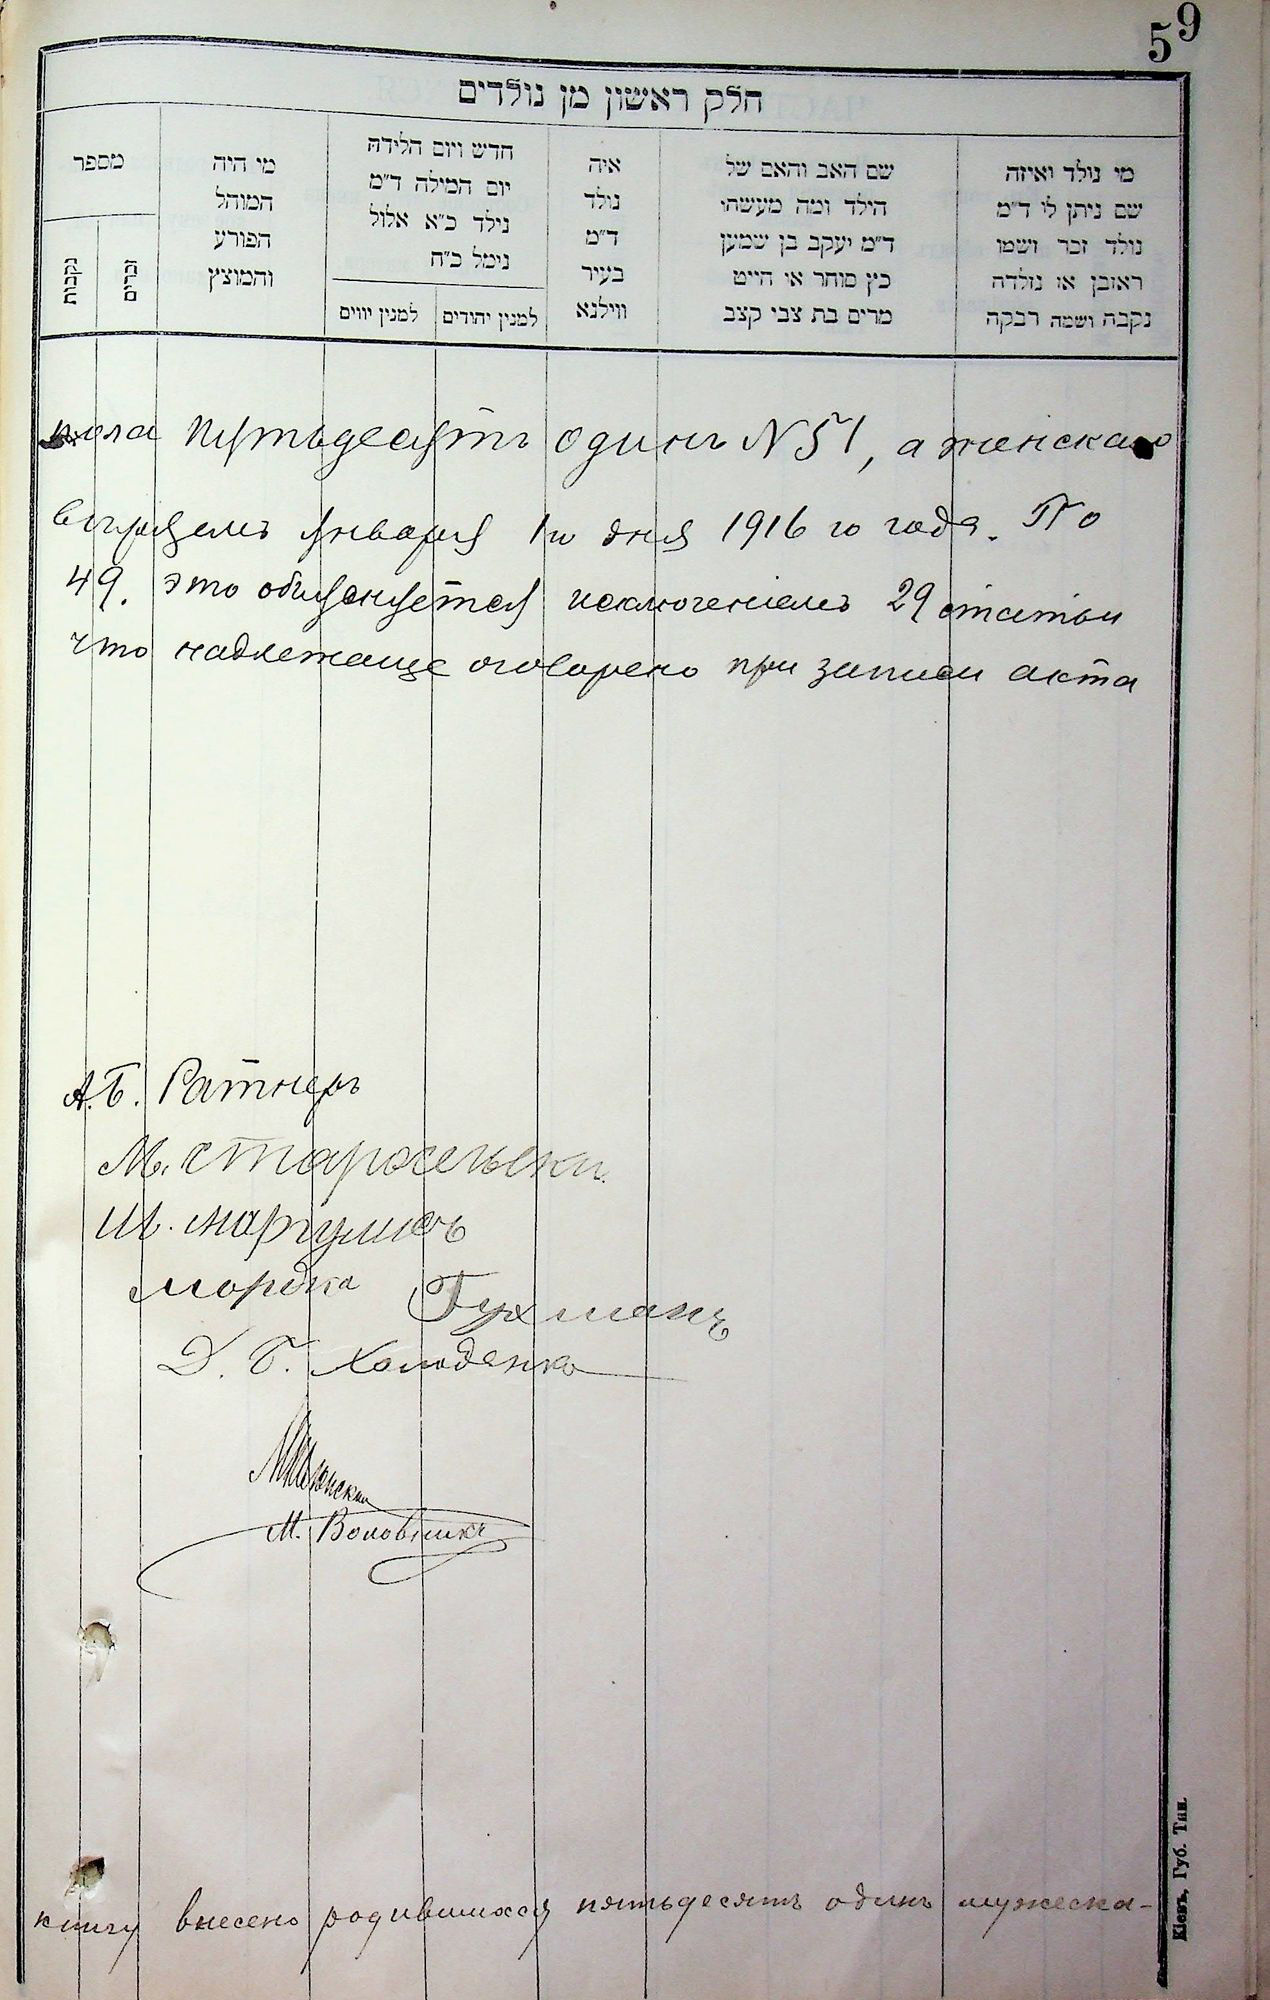 59
חלק ראשון מן נולדים
מי נולד ואיזה
שם ניתן לו ד״מ
נולד זכר ושמו
ראובן או נולדה
נקבה ושמה רבקה
שם האב והאם של
הילד ומה מעשהו
ד״מ יעקב בן שמעון
כץ סוחר או חייט
מרים בת צבי קצב
איה
נולד
ד״מ
בעיר
ווילנא
חדש ויום הלידה
יום המילה ד״מ
נילד כ״א אלול
נימל כ״ח
למנין יהודים
למנין יווים
מי היה
המוהל
הפורע
והמוצץ
מספר
זכרים
נקבות
пола пятьдесятъ одинъ N 51, а женскаго
Января 1го дня 1916 го года. По
49. это объясняется исключеніемъ 29 статьи
что надлежаще оговорено при записи акта
А.Б. Ратнеръ
М. Старосельски
Ш. Маргулисъ
Мордка Гухманъ
Д. Б. Холоденко
М. Воловникъ
книгу внесено родившихся пятьдесятъ одинъ мужеска-
Кіевъ, Губ. Тип.